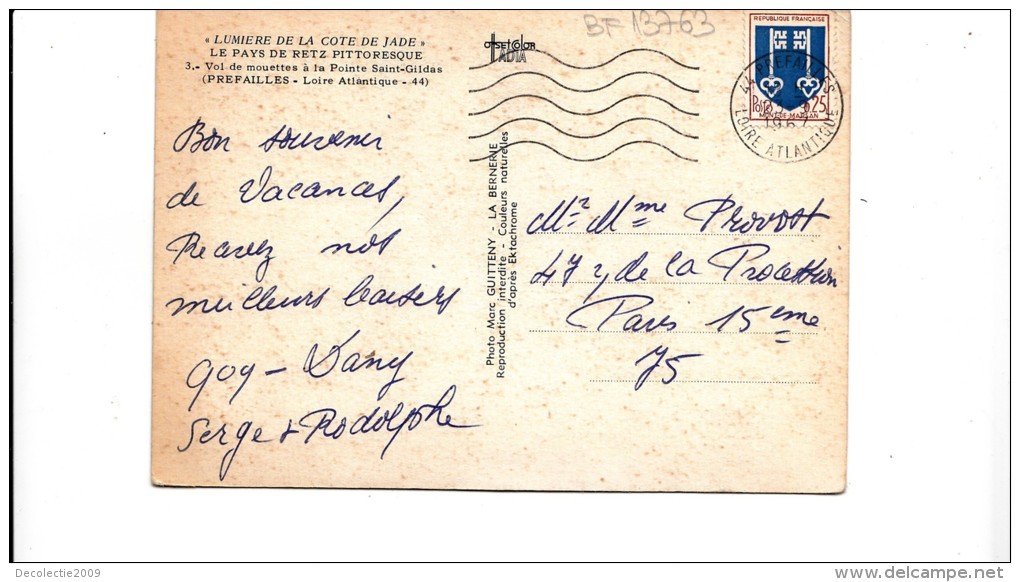 BF 13763
« LUMIERE DE LA COTE DE JADE »
LE PAYS DE RETZ PITTORESQUE
3.- Vol de mouettes à la Pointe Saint-Gildas
(PREFAILLES - Loire Atlantique - 44)
OFFSET COLOR
REPUBLIQUE FRANÇAISE
Postes 0,25
MONT-DE-MARSAN
44 PREFAILLES
LOIRE ATLANTIQUE
Bon souvenir
de Vacances,
Recevez nos
meilleurs baisers
Dany
Serge & Rodolphe
Photo Marc GUITTENY - LA BERNERIE
Reproduction interdite - Couleurs naturelles
d'après Ektachrome
Mr Mme Provost
47 de la Procession
Paris 15eme
75
Decolectie2009
www.delcampe.net